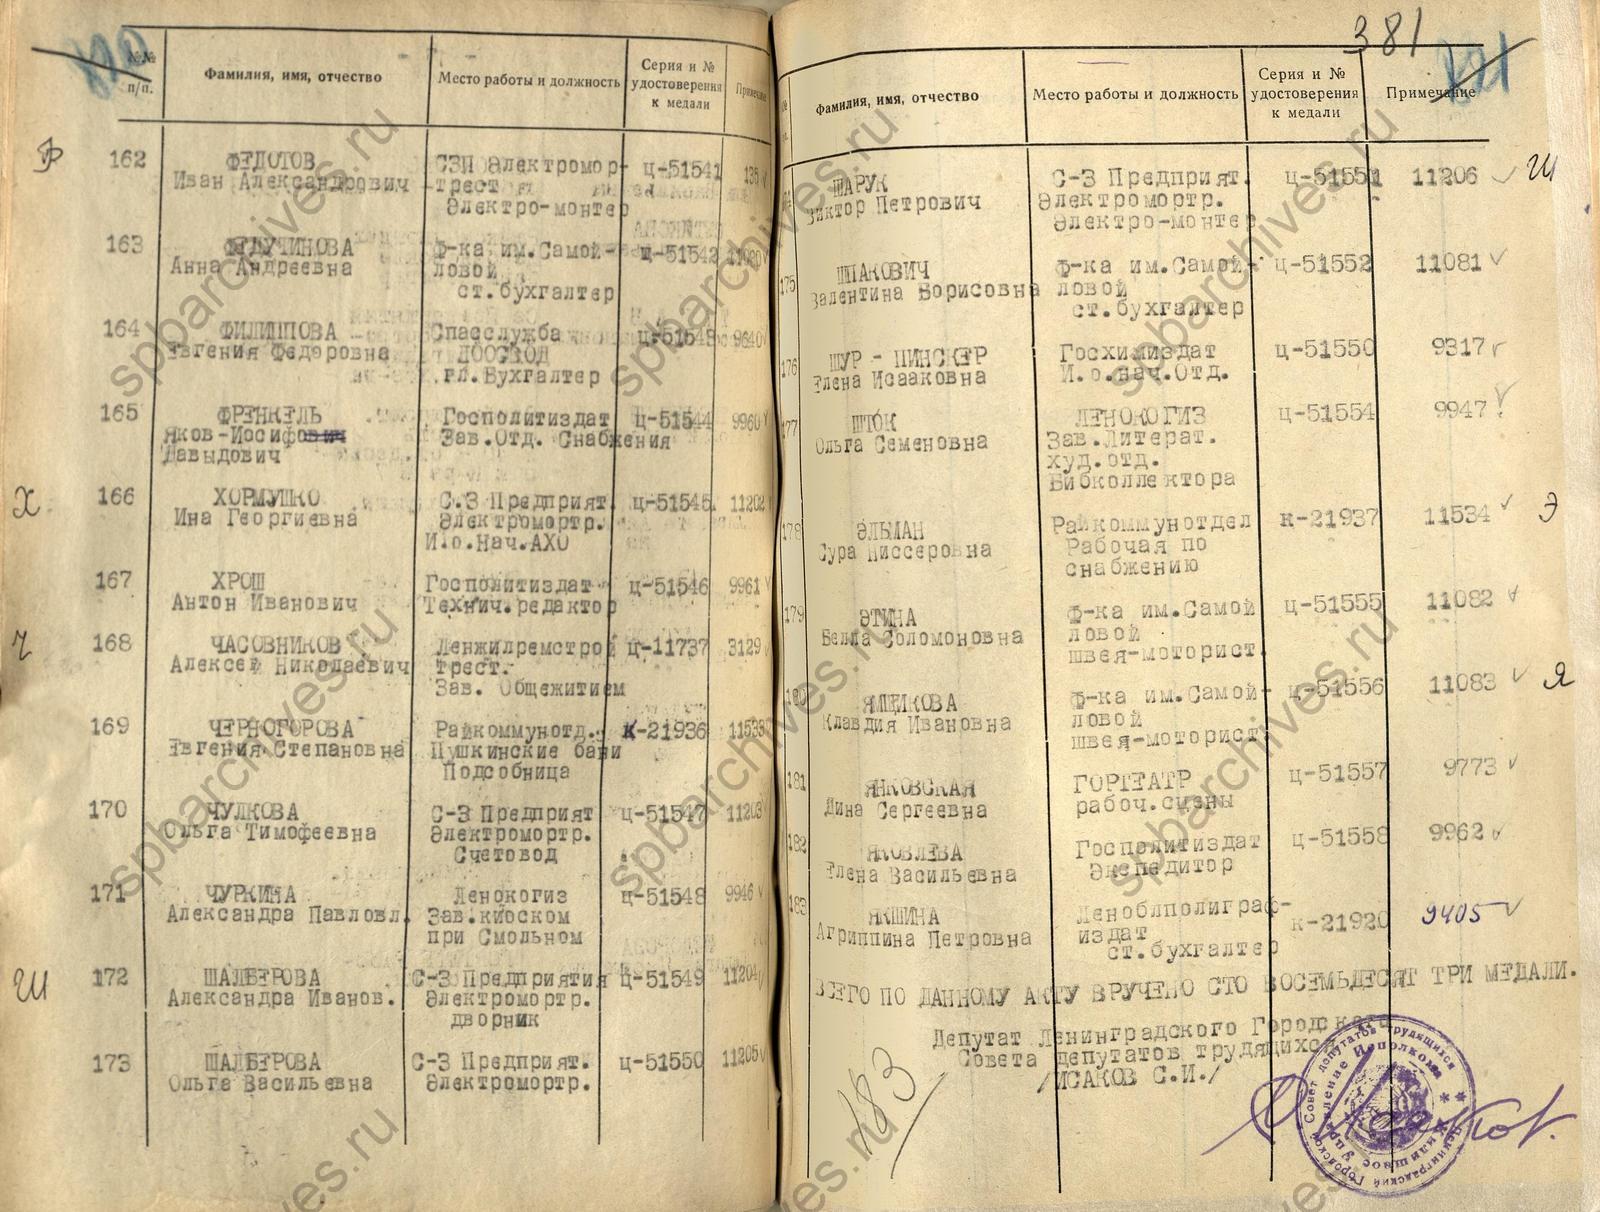 №№ п/п.
Фамилия, имя, отчество
Место работы и должность
Серия и № удостоверения к медали
Примечание
Ф
162 ФЕДОТОВ СЗП Электромор- ц-51541 135
Иван Александрович трест
Электро-монтер
163 Ф-ка им.Самой- ц-51542
Анна Андреевна ловой
ст.бухгалтер
164 ФИЛИППОВА Спасслужба 9640
Евгения Федоровна
гл.Бухгалтер
165 ФРЕНКЕЛЬ Госполитиздат ц-51544 9960
Яков-Иосифович Зав.Отд. Снабжения
Давыдович
Х
166 ХОРМУШКО С.З Предприят. ц-51545 11202
Ина Георгиевна Электромортр.
И.о.Нач.АХО
167 ХРОШ Госполитиздат ц-51546 9961
Антон Иванович Технич.редактор
Ч
168 ЧАСОВНИКОВ Ленжилремстрой ц-11737 3129
Алексей Николаевич трест.
Зав. Общежитием
169 ЧЕРНОГОРОВА Райкоммунотд. к-21936 11533
Евгения Степановна Пушкинские бани
Подсобница
170 ЧУЛКОВА С-З Предприят ц-51547 11203
Ольга Тимофеевна Электромортр.
Счетовод
171 ЧУРКИНА Ленокогиз ц-51548 9946
Александра Павловл. Зав.киоском
при Смольном
Ш
172 ШАЛБЕРОВА С-З Предприятия ц-51549 11204
Александра Иванов. Электромортр.
дворник
173 ШАЛБЕРОВА С-З Предприят. ц-51550 11205
Ольга Васильевна Электромортр.
381
Фамилия, имя, отчество
Место работы и должность
Серия и № удостоверения к медали
Примечание
ШАРУК С-З Предприят. ц-51551 11206 Ш
Виктор Петрович Электромортр.
Электро-монтер
175 ШПАКОВИЧ Ф-ка им.Самой- ц-51552 11081
Валентина Борисовна ловой
ст.бухгалтер
176 ШУР - ПИНСКЕР Госхимиздат ц-51550 9317
Елена Исааковна И.о.нач.Отд.
177 ШТОК ЛЕНОКОГИЗ ц-51554 9947
Ольга Семеновна Зав.Литерат.
худ.отд.
Бибколлектора
178 ЭЛЬМАН Райкоммунотдел к-21937 11534 Э
Сура Ниссеровна Рабочая по
снабжению
179 ЭТИНА Ф-ка им.Самой ц-51555 11082
Белла Соломоновна ловой
швея-моторист.
180 ЯМЩИКОВА Ф-ка им.Самой- ц-51556 11083 Я
Клавдия Ивановна ловой
швея-моторист
181 ЯНКОВСКАЯ ГОРТЕАТР ц-51557 9773
Дина Сергеевна рабоч.сцены
182 ЯКОВЛЕВА Госполитиздат ц-51558 9962
Елена Васильевна Экспедитор
183 ЯКШИНА Леноблполиграф- к-21920 9405
Агриппина Петровна издат
ст.бухгалтер
ВСЕГО ПО ДАННОМУ АКТУ ВРУЧЕНО СТО ВОСЕМЬДЕСЯТ ТРИ МЕДАЛИ.
Депутат Ленинградского Городского
Совета депутатов трудящихся
/ИСАКОВ С.И./
183
Исаков.
Ленинградский Городской Совет депутатов трудящихся
Жилищное управление Исполкома
spbarchives.ru
spbarchives.ru
spbarchives.ru
spbarchives.ru
spbarchives.ru
spbarchives.ru